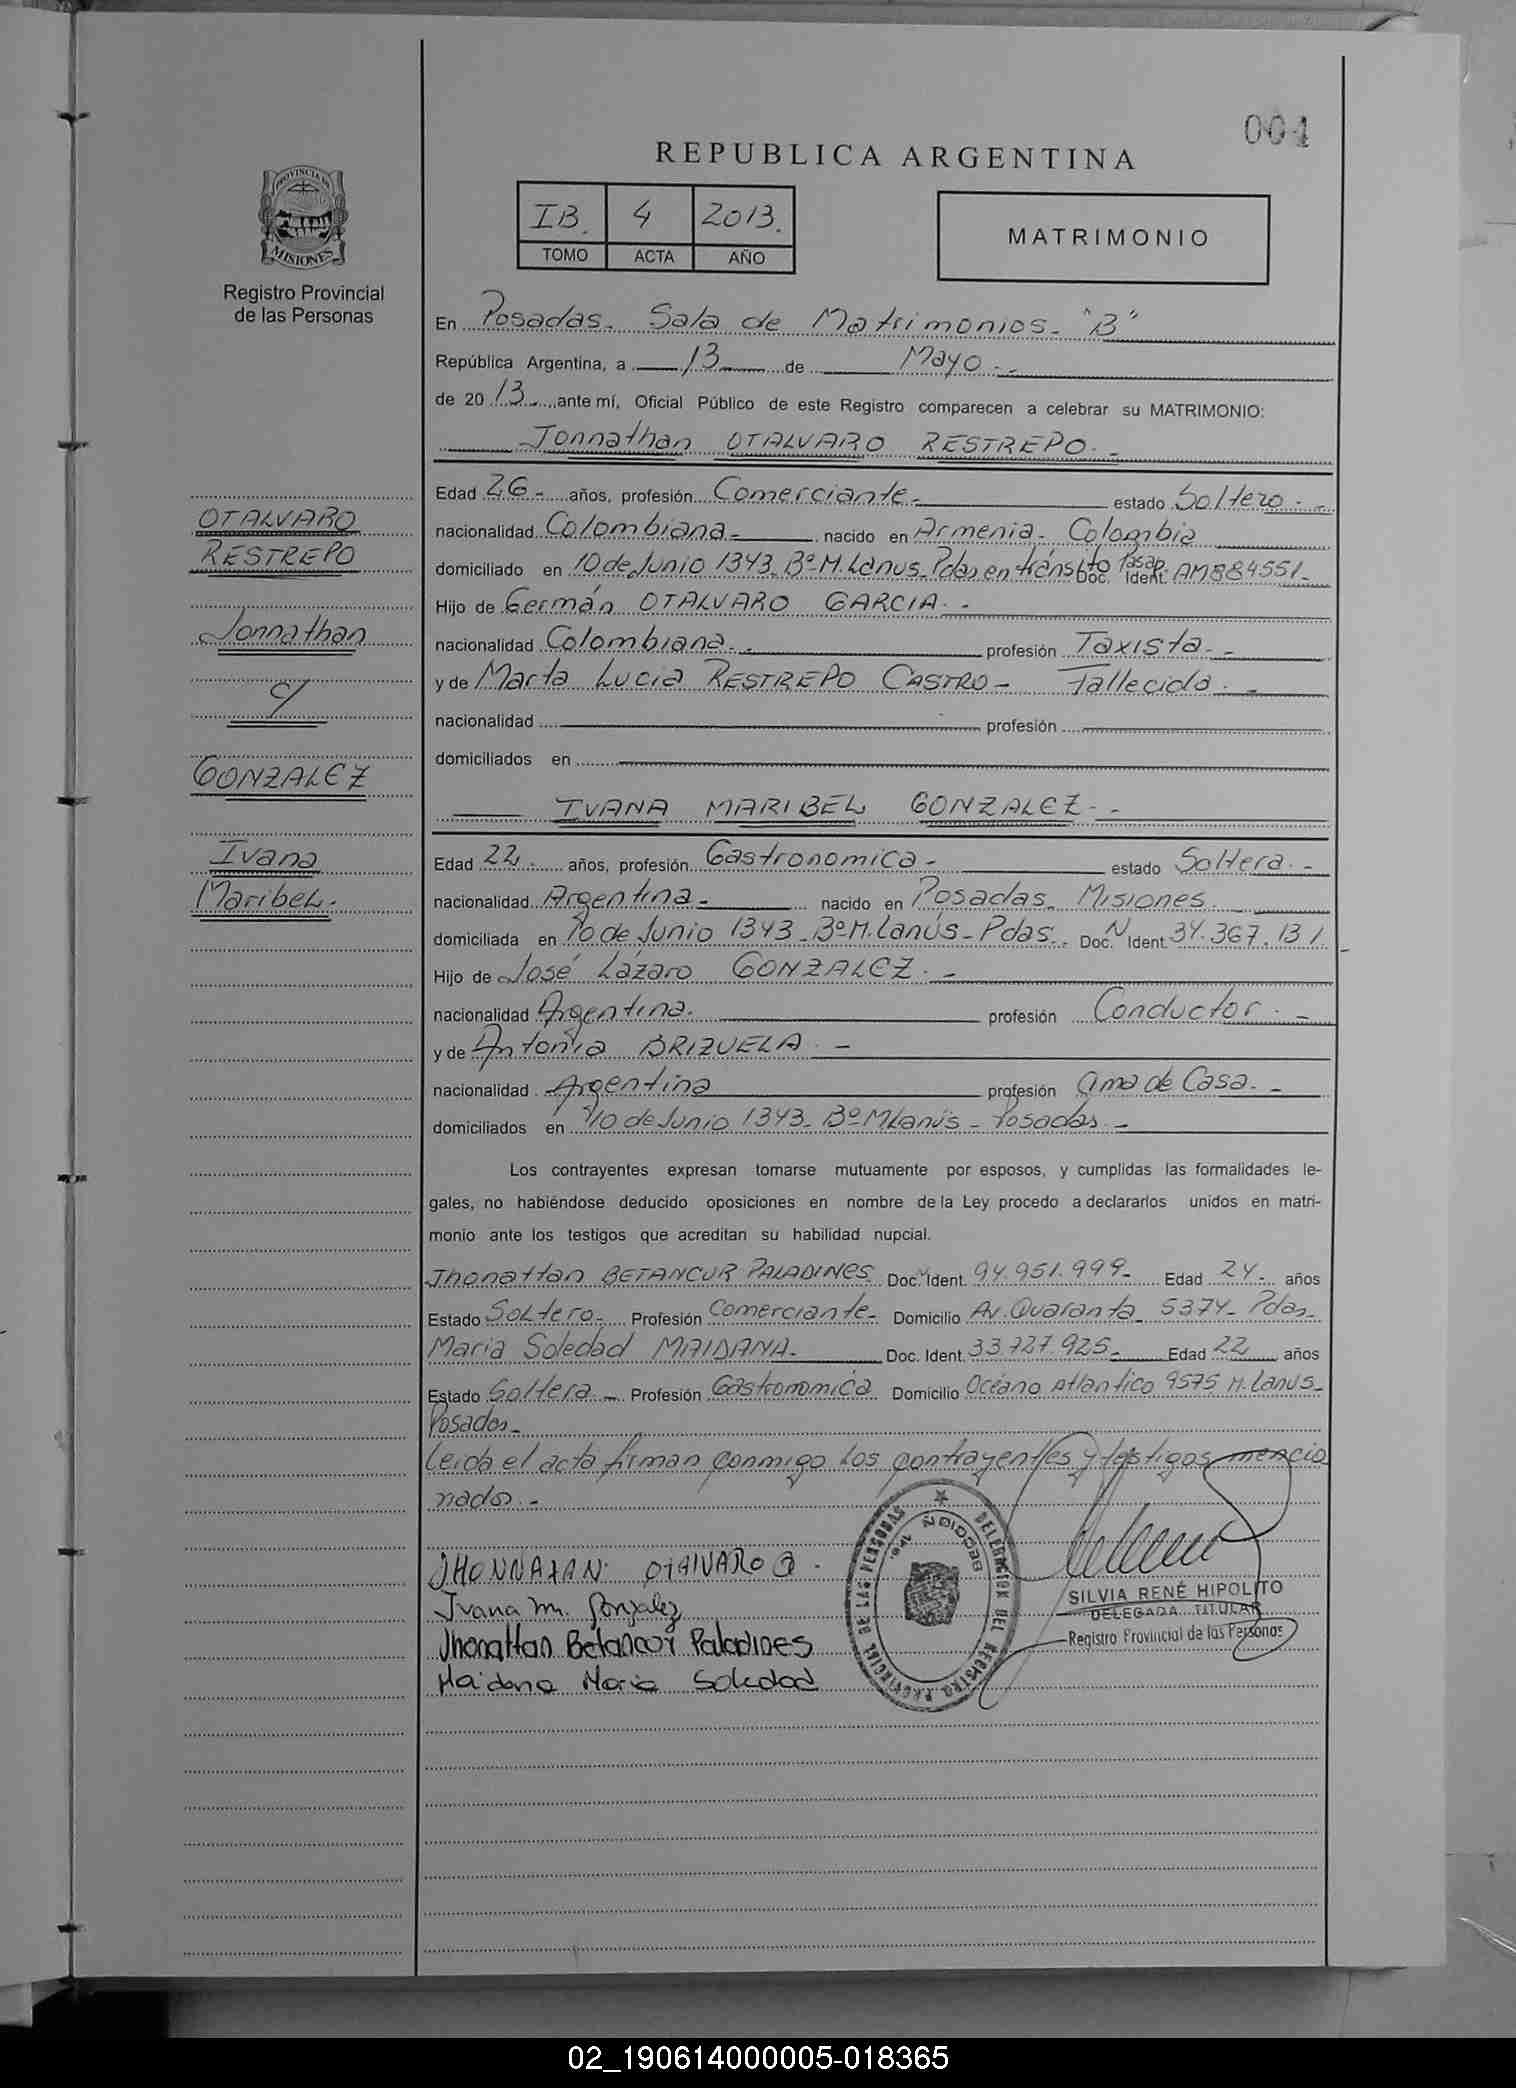 004
REPUBLICA ARGENTINA
PROVINCIA DE
MISIONES
Registro Provincial
de las Personas
IB. 4 2013.
TOMO ACTA AÑO
MATRIMONIO
En Posadas. Sala de Matrimonios - "B"
República Argentina, a 13 de Mayo -
de 20 13 - ante mí, Oficial Público de este Registro comparecen a celebrar su MATRIMONIO:
Jonnathan OTALVARO RESTREPO. -
Edad 26 - años, profesión Comerciante - estado Soltero -
OTALVARO
nacionalidad Colombiana - nacido en Armenia - Colombia
RESTREPO
domiciliado en 10 de Junio 1343 - Bº M. Lanus - Pdas en tránsito Doc. Pasap. Ident. AM884551 -
Hijo de Germán OTALVARO GARCIA -
Jonnathan
nacionalidad Colombiana - profesión Taxista -
y de Marta Lucia RESTREPO CASTRO - Fallecida -
c/
nacionalidad profesión
domiciliados en
GONZALEZ
IVANA MARIBEL GONZALEZ -
Ivana
Edad 22 - años, profesión Gastronomica - estado Soltera -
Maribel -
nacionalidad Argentina - nacido en Posadas - Misiones
domiciliada en 10 de Junio 1343 - Bº M. Lanús - Pdas - Doc. N Ident. 34.367.131 -
Hijo de José Lázaro GONZALEZ -
nacionalidad Argentina. profesión Conductor -
y de Antonia BRIZUELA -
nacionalidad Argentina profesión Ama de Casa -
domiciliados en 10 de Junio 1343 - Bº M Lanús - Posadas -
Los contrayentes expresan tomarse mutuamente por esposos, y cumplidas las formalidades le-
gales, no habiéndose deducido oposiciones en nombre de la Ley procedo a declararlos unidos en matri-
monio ante los testigos que acreditan su habilidad nupcial.
Jhonattan BETANCUR PALADINES Doc. Ident. 94.951.999 - Edad 24 - años
Estado Soltero - Profesión Comerciante - Domicilio Av. Quaranta 5374 - Pdas -
Maria Soledad MAIDANA - Doc. Ident. 33.727.925 - Edad 22 años
Estado Soltera - Profesión Gastronomica Domicilio Océano Atlantico 9575 M. Lanús -
Posadas -
Leida el acta firman conmigo los contrayentes y testigos mencio
nados -
JHONNATAN OTALVARO R.
Ivana M. Gonzalez
Jhonattan Betancur Paladines
Maidana Maria Soledad
DELEGACION DEL REGISTRO PROVINCIAL DE LAS PERSONAS
SECCION
SILVIA RENÉ HIPOLITO
DELEGADA TITULAR
Registro Provincial de las Personas
02_190614000005-018365